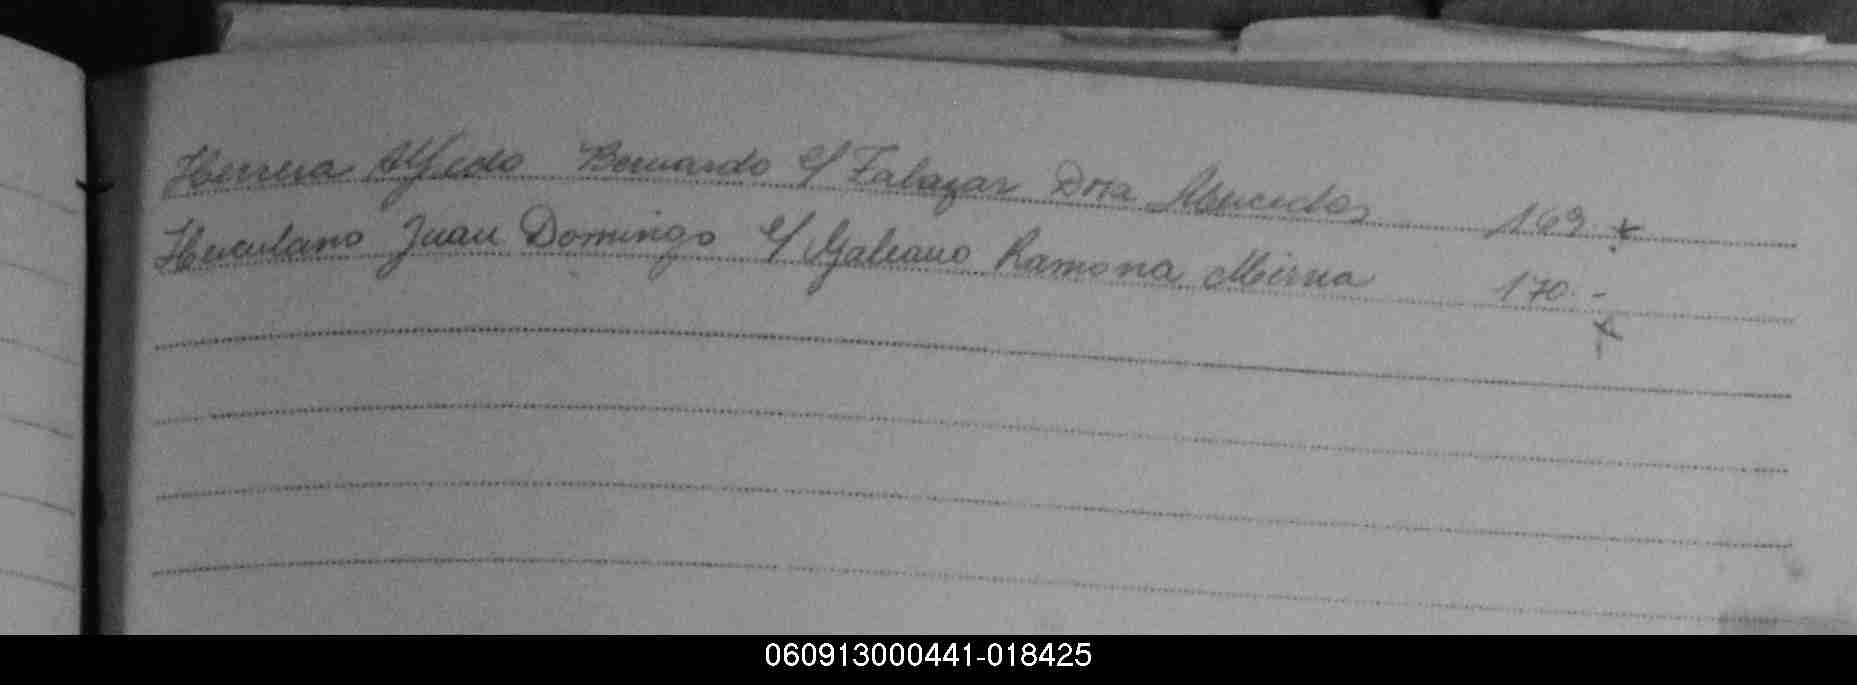 Herrera Alfredo Bernardo c/ Zalazar Dora Mercedes 169. x
Herculano Juan Domingo c/ Galeano Ramona Mirna 170.-
x
060913000441-018425